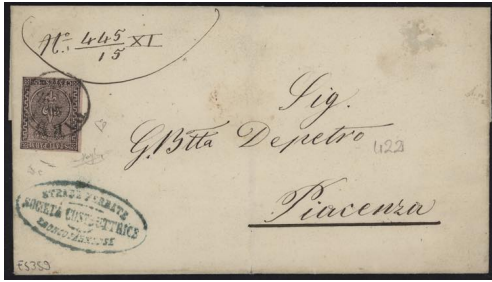 No. 445/15 XI
Sig.
G. Btta Depetro
422
Piacenza
STRADE FERRATE
SOCIETÀ COSTRUTTRICE
E5359